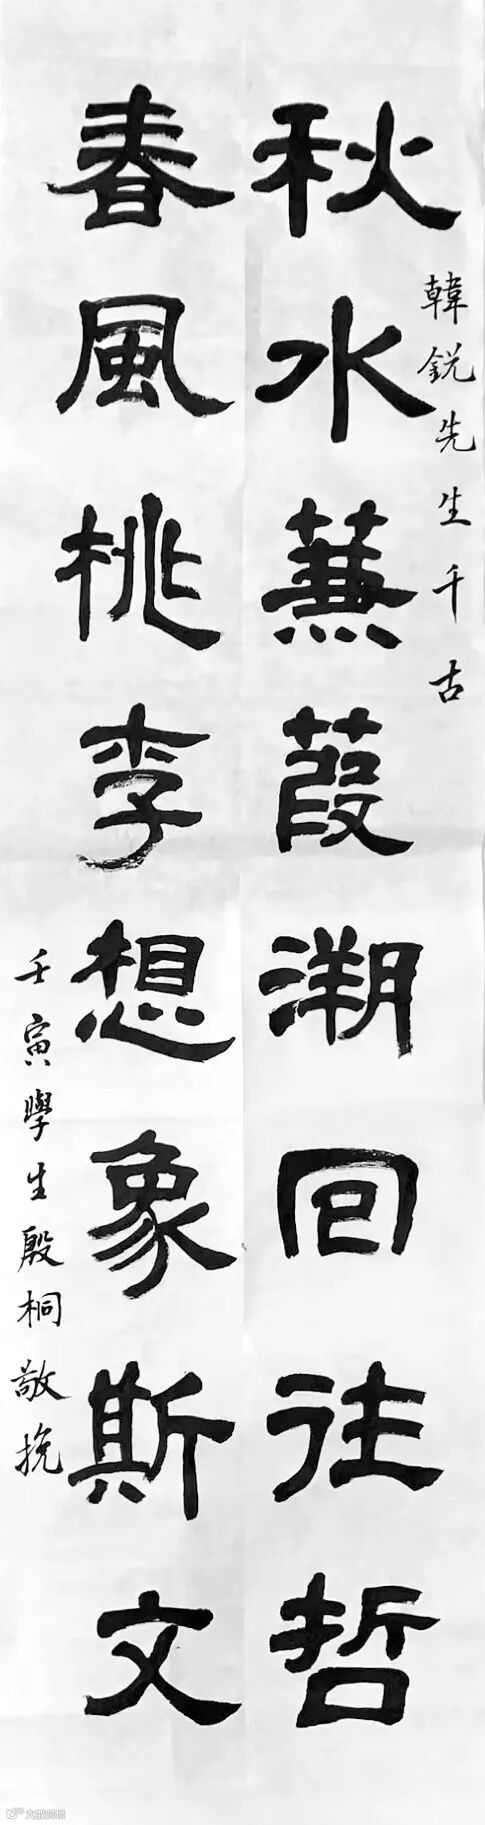 韓銳先生千古
秋水蒹葭溯回往哲
春風桃李想象斯文
壬寅學生殷桐敬挽